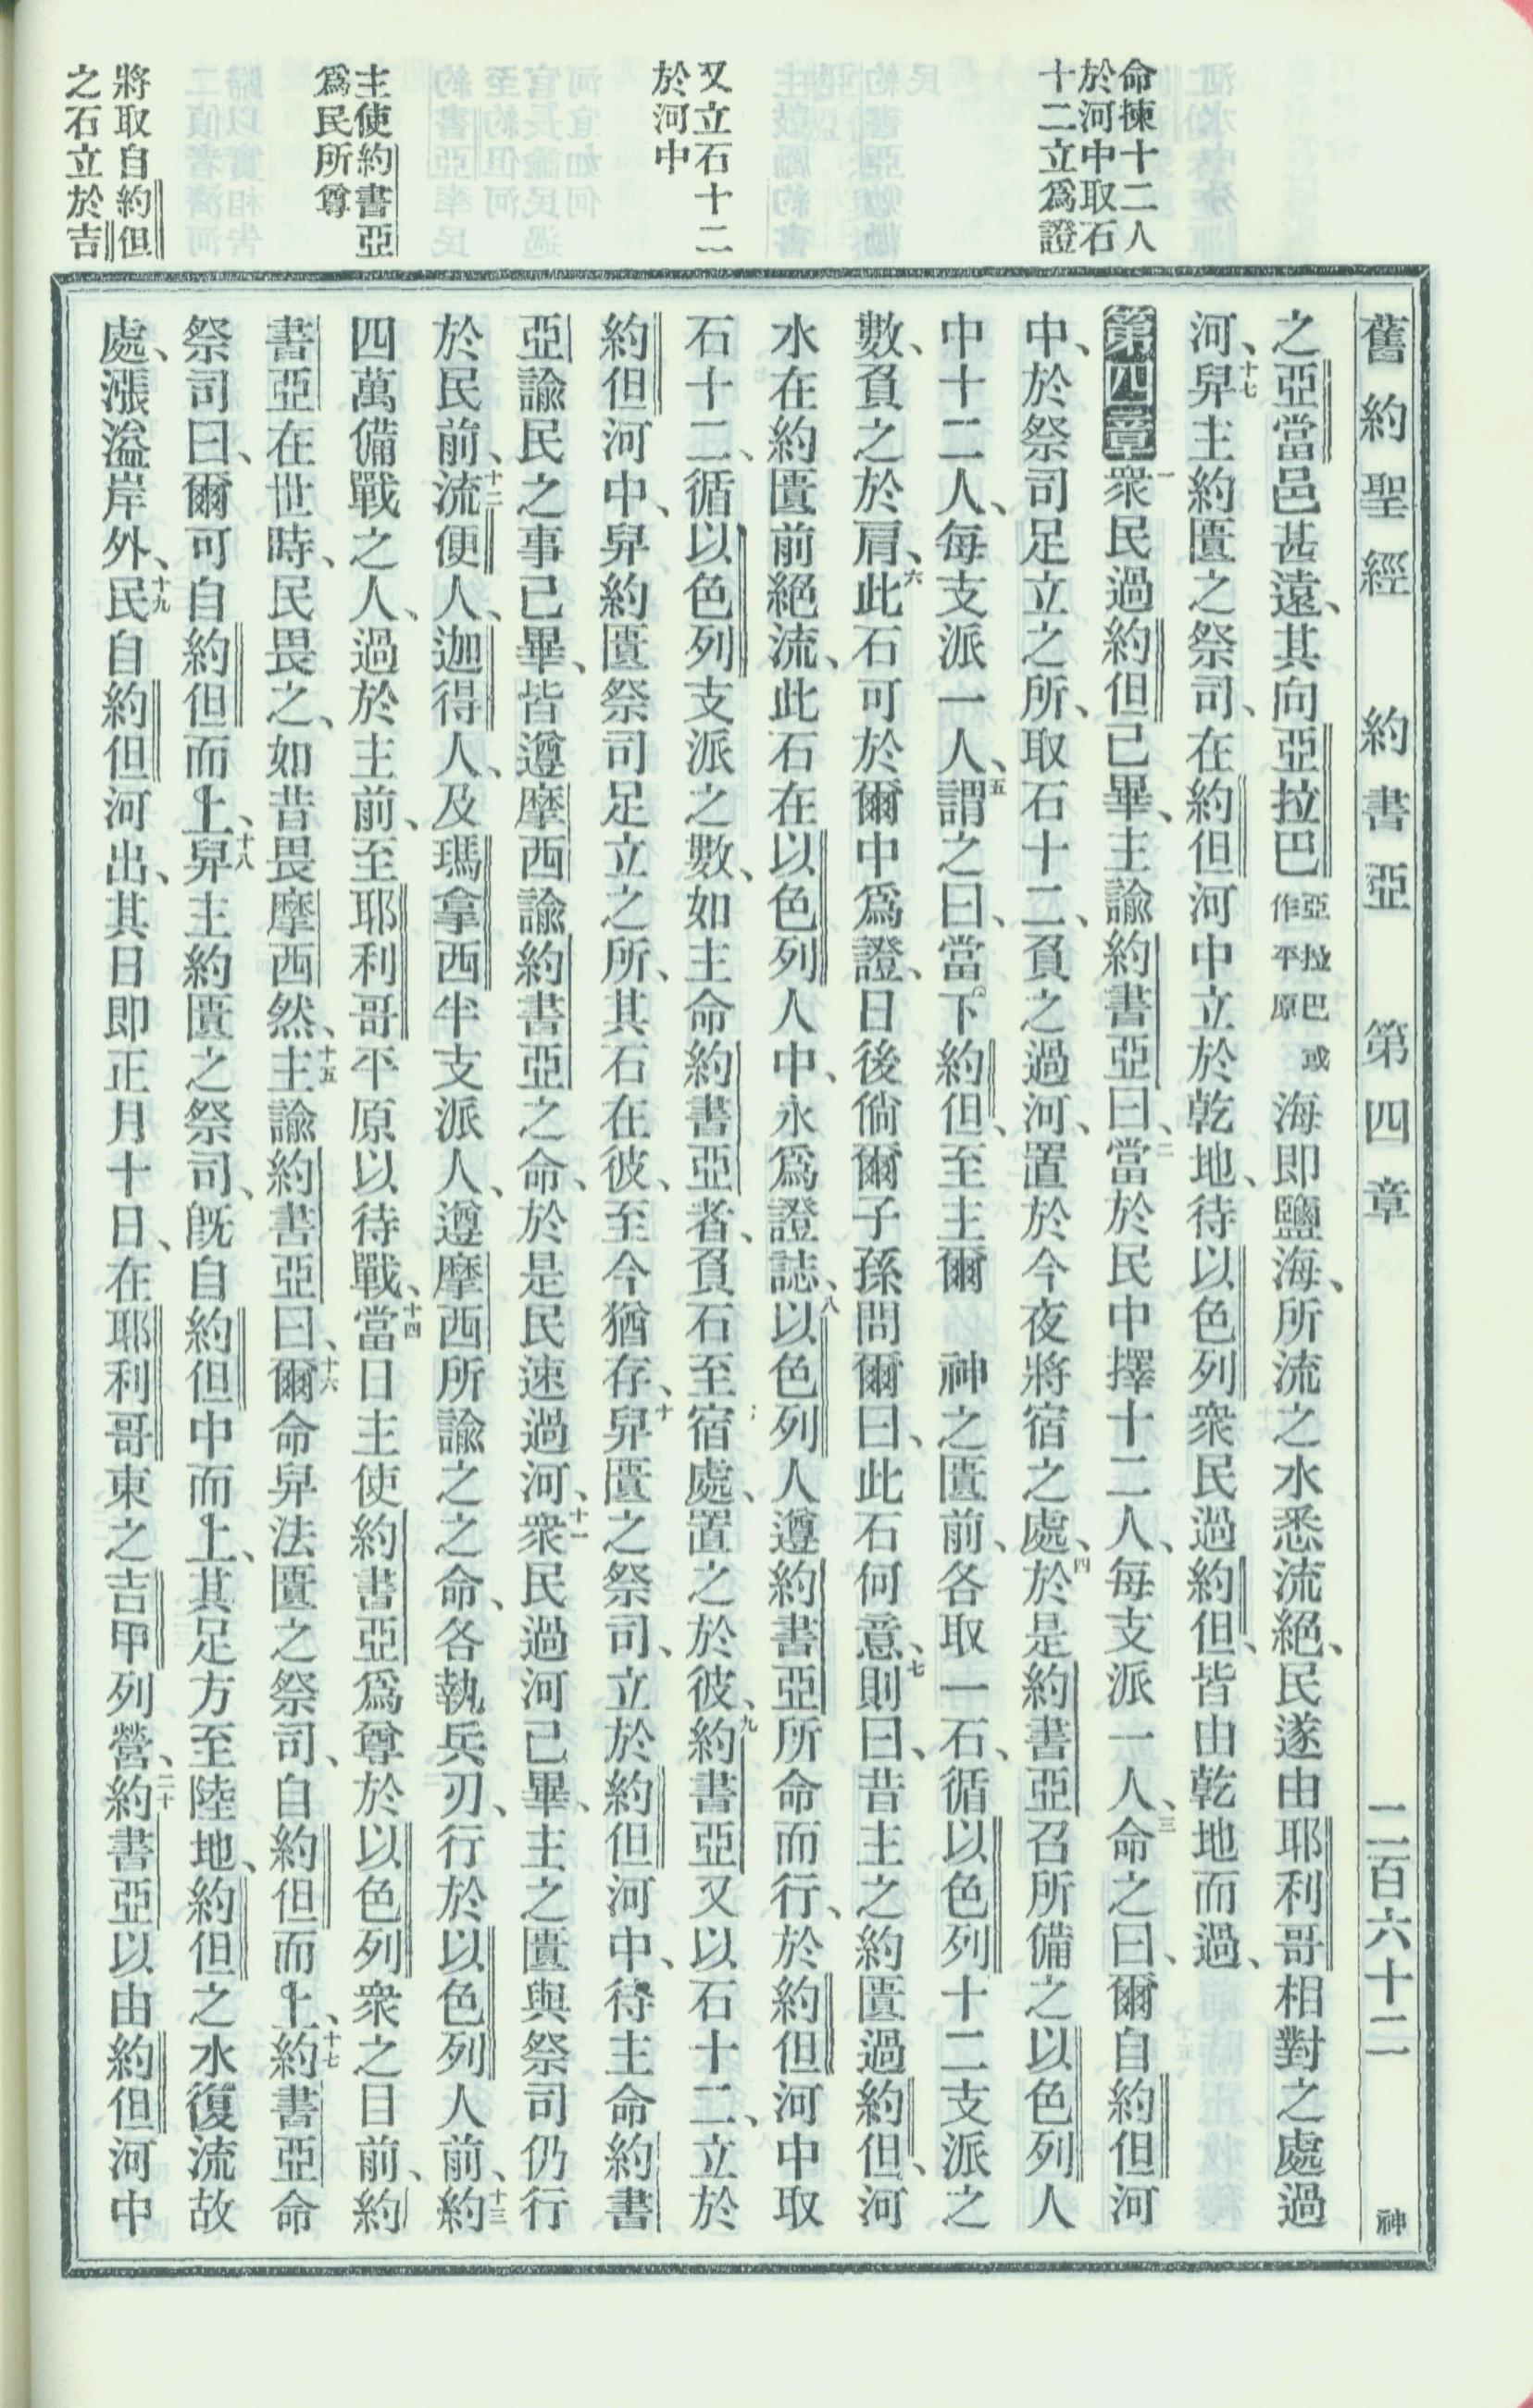 舊約聖經 約書亞 第四章 二百六十二 神
命揀十二人
於河中取石
十二立爲證
又立石十二
於河中
主使約書亞
爲民所尊
將取自約但
之石立於吉
之亞當邑甚遠、其向亞拉巴亞拉巴或作平原海即鹽海、所流之水悉流絕、民遂由耶利哥相對之處過
河、十七舁主約匱之祭司、在約但河中立於乾地、待以色列衆民過約但、皆由乾地而過、
第四章一衆民過約但已畢、主諭約書亞曰、二當於民中擇十二人、每支派一人、三命之曰、爾自約但河
中、於祭司足立之所、取石十二、負之過河、置於今夜將宿之處、四於是約書亞召所備之以色列人
中十二人、每支派一人、五謂之曰、當下約但、至主爾 神之匱前、各取一石、循以色列十二支派之
數、負之於肩、六此石可於爾中爲證、日後倘爾子孫問爾曰、此石何意、七則曰、昔主之約匱過約但、河
水在約匱前絕流、此石在以色列人中、永爲證誌、八以色列人遵約書亞所命而行、於約但河中取
石十二、循以色列支派之數、如主命約書亞者、負石至宿處、置之於彼、九約書亞又以石十二、立於
約但河中、舁約匱祭司足立之所、其石在彼、至今猶存、十舁匱之祭司、立於約但河中、待主命約書
亞諭民之事已畢、皆遵摩西諭約書亞之命、於是民速過河、十一衆民過河已畢、主之匱與祭司仍行
於民前、十二流便人、迦得人、及瑪拿西半支派人、遵摩西所諭之之命、各執兵刃、行於以色列人前、十三約
四萬備戰之人、過於主前、至耶利哥平原以待戰、十四當日主使約書亞爲尊於以色列衆之目前、約
書亞在世時、民畏之、如昔畏摩西然、十五主諭約書亞曰、十六爾命舁法匱之祭司、自約但而上、十七約書亞命
祭司曰、爾可自約但而上、十八舁主約匱之祭司、旣自約但中而上、其足方至陸地、約但之水復流故
處、漲溢岸外、十九民自約但河出、其日即正月十日、在耶利哥東之吉甲列營、二十約書亞以由約但河中